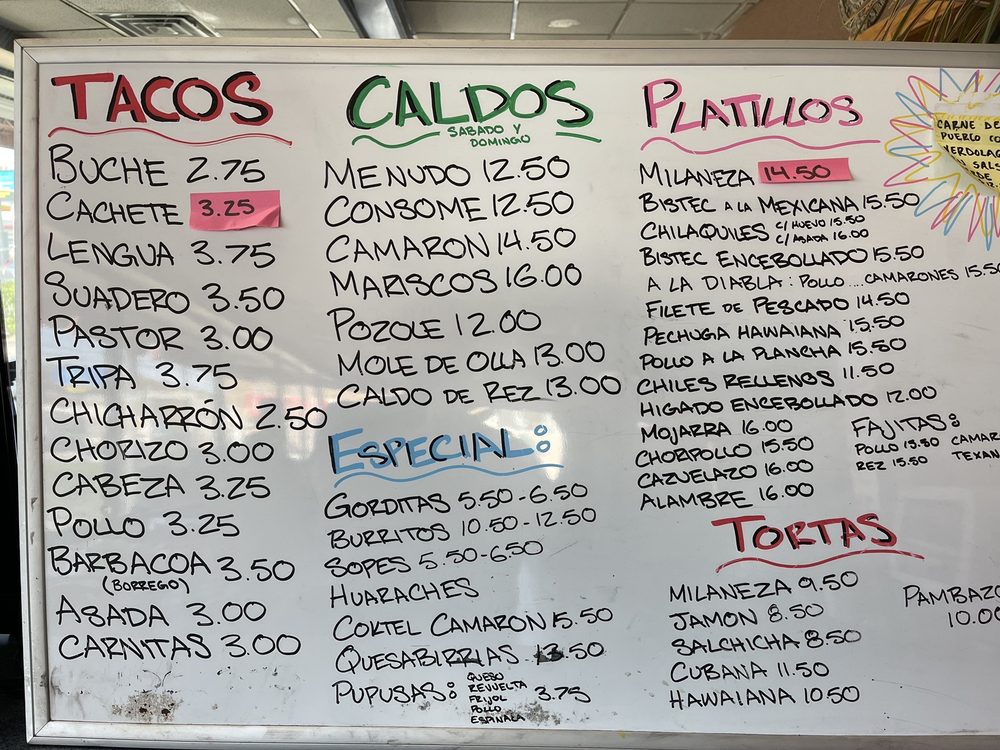 TACOS
BUCHE 2.75
CACHETE 3.25
LENGUA 3.75
SUADERO 3.50
PASTOR 3.00
TRIPA 3.75
CHICHARRÓN 2.50
CHORIZO 3.00
CABEZA 3.25
POLLO 3.25
BARBACOA 3.50
(BORREGO)
ASADA 3.00
CARNITAS 3.00
CALDOS
SABADO Y
DOMINGO
MENUDO 12.50
CONSOME 12.50
CAMARON 14.50
MARISCOS 16.00
POZOLE 12.00
MOLE DE OLLA 13.00
CALDO DE REZ 13.00
ESPECIAL:
GORDITAS 5.50-6.50
BURRITOS 10.50-12.50
SOPES 5.50-6.50
HUARACHES
COKTEL CAMARON 15.50
QUESABIRRIAS 13.50
PUPUSAS: 3.75
QUESO
REVUELTA
FRIJOL
POLLO
ESPINALA
PLATILLOS
MILANEZA 14.50
BISTEC A LA MEXICANA 15.50
CHILAQUILES C/HUEVO 15.50
C/ASADA 16.00
BISTEC ENCEBOLLADO 15.50
A LA DIABLA: POLLO...CAMARONES 15.50
FILETE DE PESCADO 14.50
PECHUGA HAWAIANA 15.50
POLLO A LA PLANCHA 15.50
CHILES RELLENOS 11.50
HIGADO ENCEBOLLADO 12.00
MOJARRA 16.00
CHORIPOLLO 15.50
CAZUELAZO 16.00
ALAMBRE 16.00
FAJITAS:
POLLO 15.50 CAMAR
REZ 15.50 TEXAN
CARNE DE
PUERCO CO
VERDOLAG
SALS
TORTAS
MILANEZA 9.50
JAMON 8.50
SALCHICHA 8.50
CUBANA 11.50
HAWAIANA 10.50
PAMBAZO
10.00